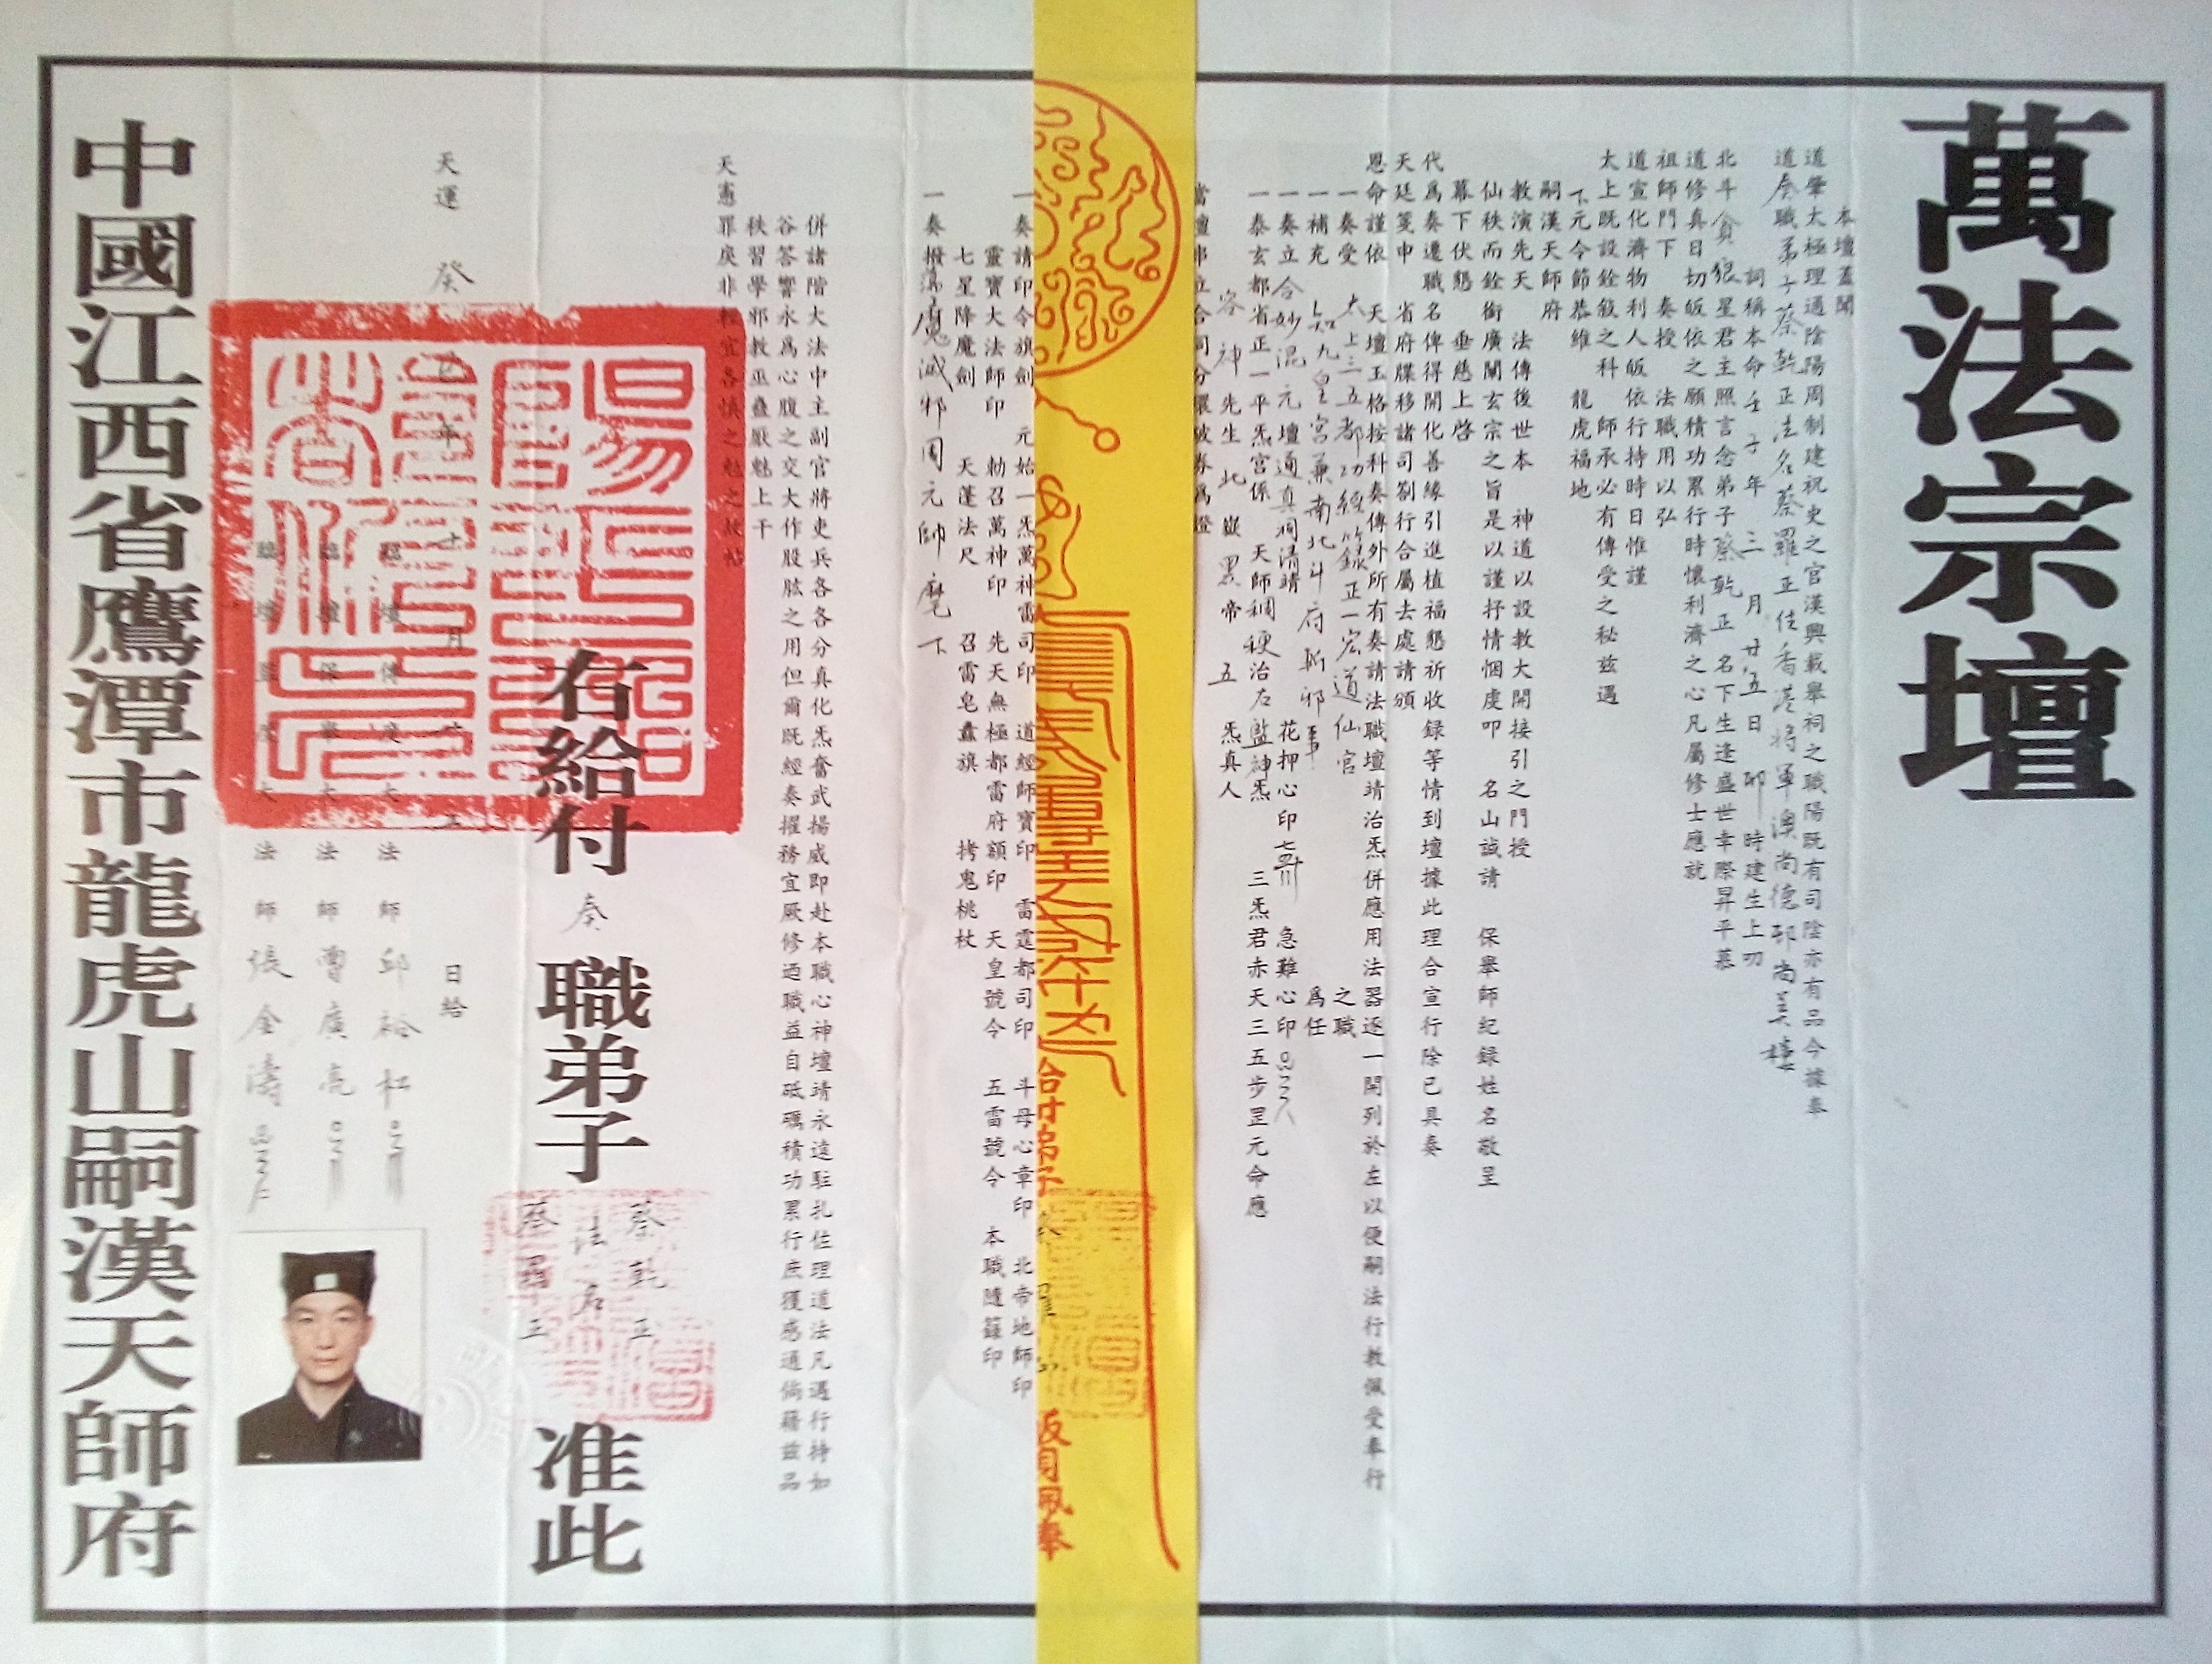 萬法宗壇
本壇蓋聞
道肇太極理通陰陽周制建祝史之官漢興載舉祠之職陽既有司陰亦有品今據奉
道奏職弟子蔡乾正法名蔡羅正住香港將軍澳尚德邨尚美樓
詞稱本命壬子年三月廿五日卯時建生上叨
北斗貪狼星君主照言念弟子蔡乾正名下生逢盛世幸際昇平慕
道修真日切皈依之願積功累行時懷利濟之心凡屬修士應就
祖師門下奏授法職用以弘
道宣化濟物利人皈依行持時日惟謹
太上既設銓敍之科師承必有傳受之秘茲遇
下元令節恭維龍虎福地
嗣漢天師府
教演先天法傳後世本神道以設教大開接引之門授
仙秩而銓銜廣闡玄宗之旨是以謹抒情悃虔叩名山誠請保舉師紀録姓名敬呈
幕下伏懇垂慈上啓
代爲奏遷職名俾得開化善緣引進植福懇祈收録等情到壇據此理合宣行除已具奏
天廷箋申省府牒移諸司劄行合屬去處請頒
恩命謹依天壇玉格按科奏傳外所有奏請法職壇靖治炁併應用法器逐一開列於左以便嗣法行教佩受奉行
一奏受太上三五都功經籙正一宏道仙官之職
一補充知九皇宮兼南北斗府斬邪事爲任
一奏立合妙混元壇通真洞清靖花押心印急難心印
一泰玄都省正一平炁宮係天師稠稉治左監神炁三炁君赤天三五步罡元命應
容神先生北嶽黑帝五炁真人
當壇
一奏請印令旗劍元始一炁萬神雷司印道經師寶印雷霆都司印斗母心章印北帝地師印
靈寶大法師印勅召萬神印先天無極都雷府額印天皇號令五雷號令本職隨籙印
七星降魔劍天蓬法尺召雷皂纛旗拷鬼桃杖
一奏撥蕩魔滅邪周元帥麾下
併諸階大法中主副官將吏兵各各分真化炁奮武揚威即赴本職心神壇靖永遠駐扎住理道法凡遇行持如
谷答響永爲心腹之交大作股肱之用但爾既經奏擢務宜厥修迺職益自砥礪積功累行庶獲感通倘藉茲品
秩習學邪教巫蠱厭魅上干
天憲罪戾非輕宜各慎之勉之故帖
右給付奏職弟子蔡乾正法名蔡羅正准此
天運癸巳年十月十五日給
臨壇傳度大法師邱裕松
臨壇保舉大法師曾廣亮
臨壇監度大法師張金濤
中國江西省鷹潭市龍虎山嗣漢天師府